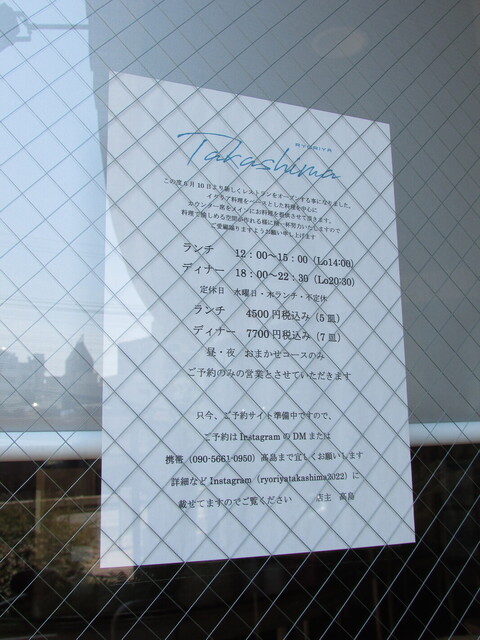 RYORIYA
Takashima
この度5月10日より新しくレストランをオープンする事になりました。
イタリア料理をベースとした料理を中心に
カウンター席をメインにお料理を提供させて頂きます。
料理で愉しめる空間が作れる様に精一杯努力いたしますので
ご愛顧賜りますようお願い申し上げます
ランチ 12：00～15：00（Lo14:00）
ディナー 18：00～22：30（Lo20:30）
定休日 水曜日・木ランチ・不定休
ランチ 4500円税込み（5皿）
ディナー 7700円税込み（7皿）
昼・夜 おまかせコースのみ
ご予約のみの営業とさせていただきます
只今、ご予約サイト準備中ですので、
ご予約は Instagram の DM または
携帯（090-5661-0950）髙島まで宜しくお願いします
詳細など Instagram（ryoriyatakashima2022）に
載せてますのでご覧ください 店主 髙島